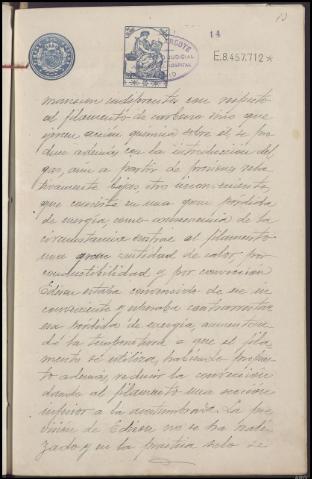 13
14
E.8.457.712*
JUDICIAL
HOSPITAL
manecen indiferentes con respecto
al filamento de carbono más que
ejercen acción química sobre él, se pro
duce además con la introducción del
gas, aun a partir de presiones rela
tivamente bajas, otro inconveniente,
que consiste en una gran pérdida
de energía, como consecuencia de la
circunstancia extrae al filamento
una gran cantidad de calor, por
conductibilidad y por convección
Edison estaba convencido de ese in
conveniente y intentaba contrarrestar
esa pérdida de energía, aumentan
do la temperatura a que el fila
mento se utiliza, habiendo
además, reducir la convección
dando al filamento una sección
inferior a la acostumbrada. La pre
visión de Edison no se ha reali
zado y en la práctica solo se